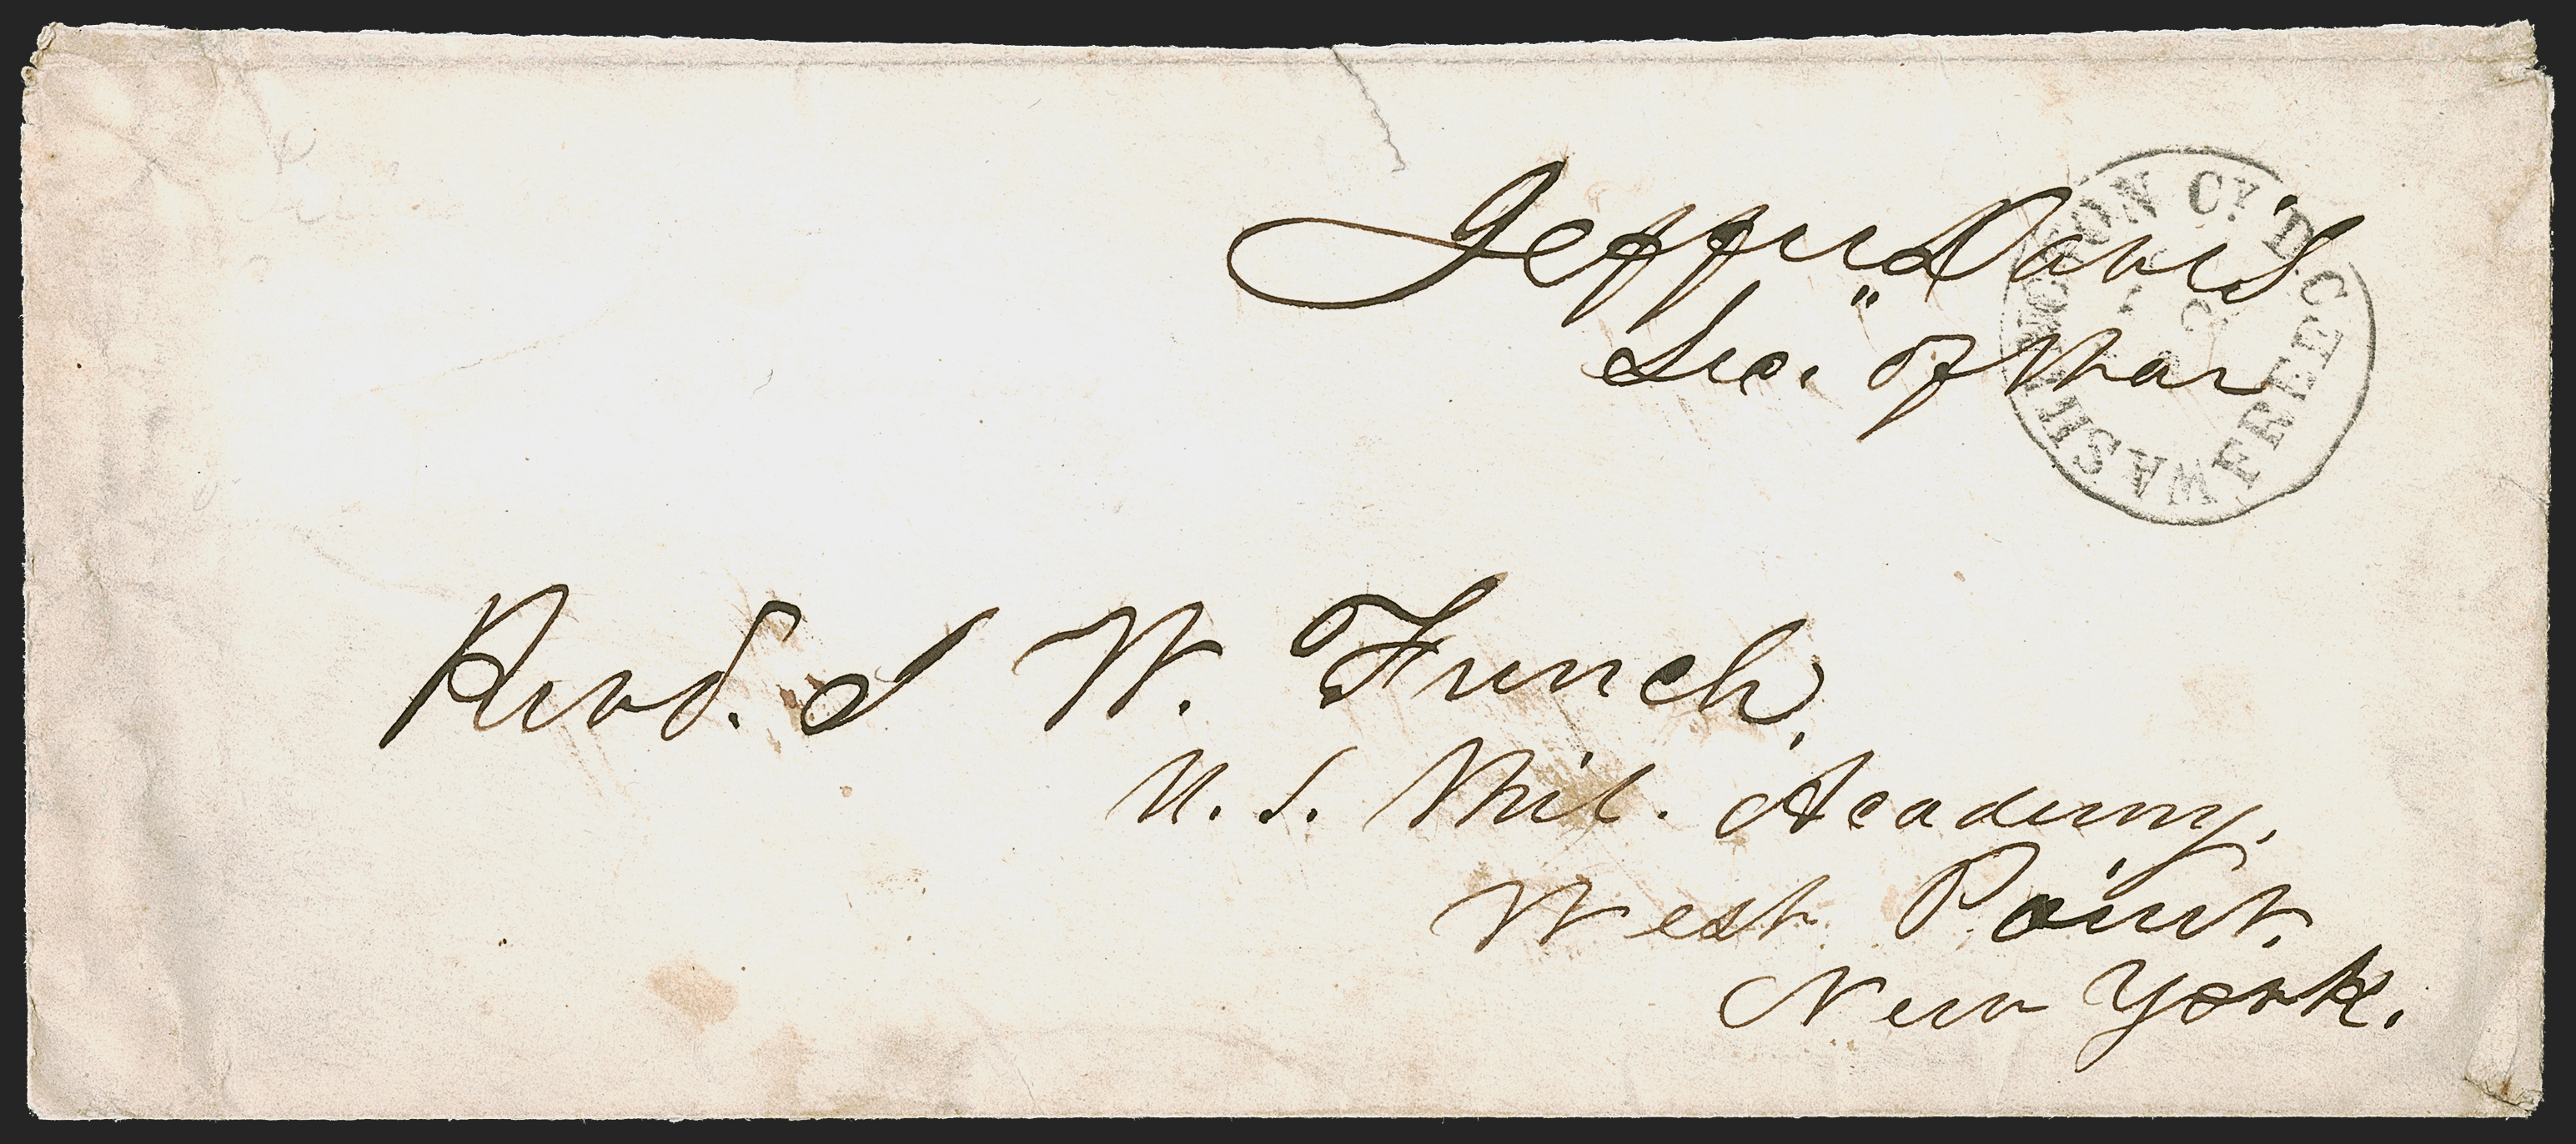 Jeffn Davis
Sec. of War
WASHINGTON CY. D.C.
FREE
Revd. J W. French,
U. S. Mil. Academy,
West Point.
New York.